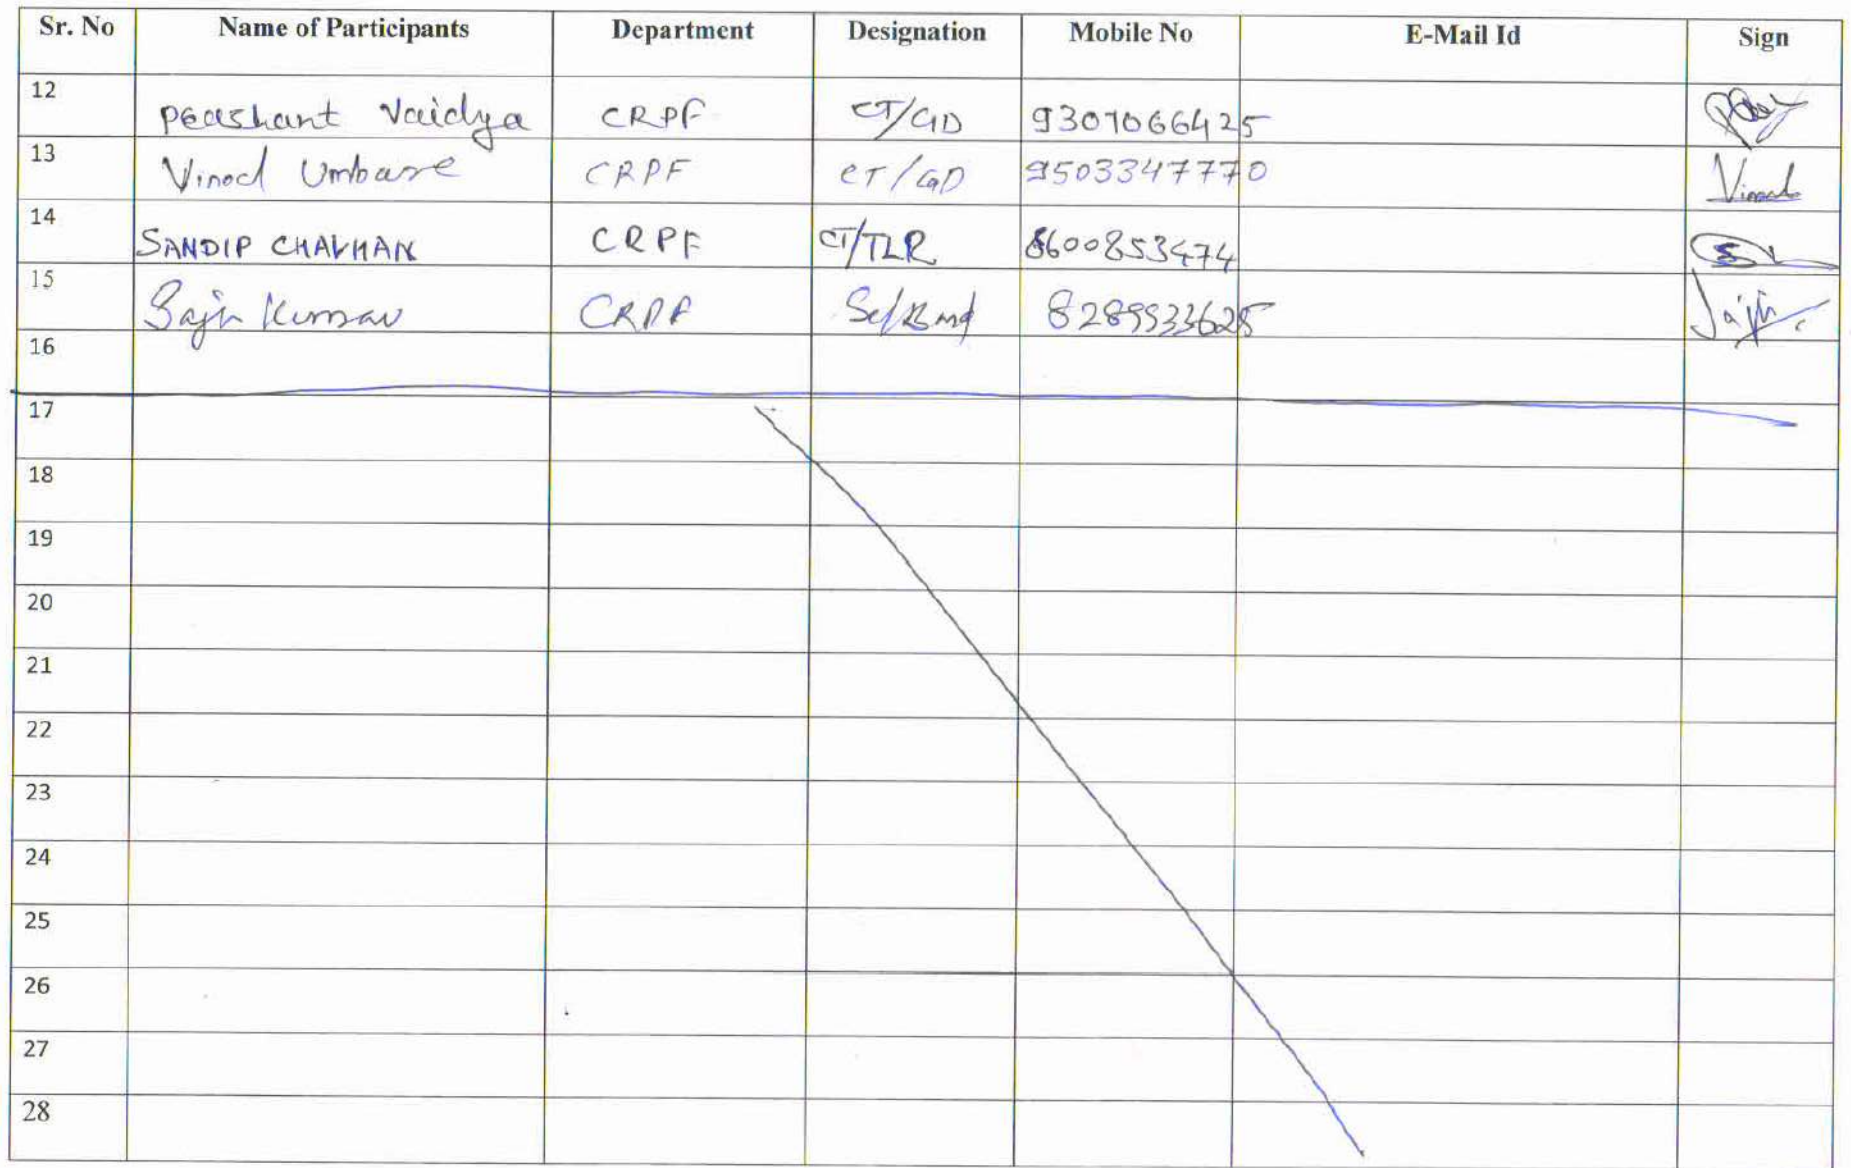 Sr. No Name of Participants Department Designation Mobile No E-Mail Id Sign
12 Prashant Vaidya CRPF CT/GD 9307066425
13 Vinod Umbare CRPF CT/GD 9503347770 Vinod
14 SANDIP CHAVHAN CRPF CT/TLR 8600853474
15 Sajin Kumar CRPF 8289933625
16
17
18
19
20
21
22
23
24
25
26
27
28